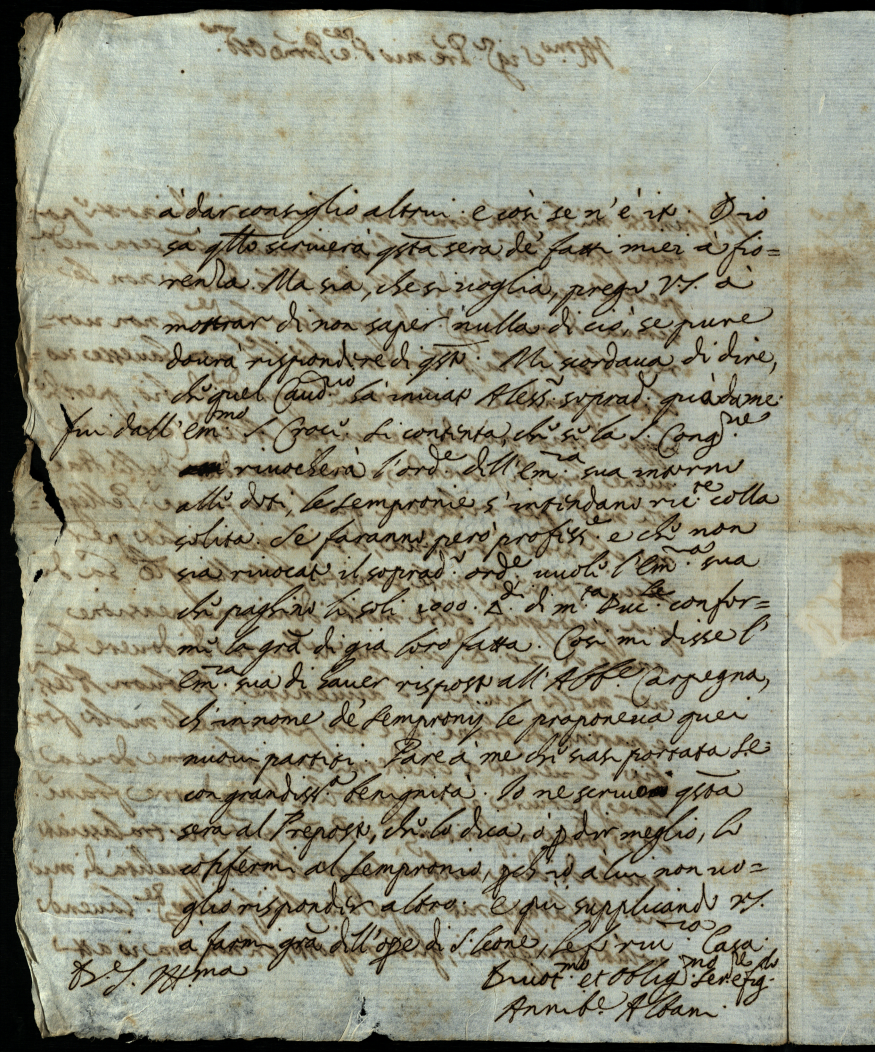 à dar consiglio altrui. e così se n'è ito. Dio
sà q.to scriverà q.sta sera de' fatti miei à Fio=
renza. Ma sia, che si voglia, prego V.S. à
mostrar di non saper nulla di ciò, se pure
dovrà rispondere di q.sto. Mi scordava di dire,
che quel Caud.rio hà inviato Aless.o soprad.o quà da me.
fui dall' Em.mo S. Croce. Si contenta, che se la S. Cong.ne
rivocherà l'ord.e dell' Em.za sua intorno
alle doti, le Sempronie s'intendano ric.te colla
solita. Se faranno però profess.e e che non
sia rivocato il soprad.o ord.e vuole l' Em.za sua
che paghino li soli 1000. di m.ta Duc.le confor=
me la gra di già loro fatta. Così mi disse l'
Em.za sua di haver risposto all' Abb.e Carpegna,
che in nome de' Sempronij le proponeva quei
nuovi partiti. Pare à me che siasi portata S.E.
con grandiss.a benignità. Io ne scrivo q.sta
sera al Preposto, che lo dica, ò p dir meglio, lo
confermi al Sempronio, pche io à lui non vo=
glio risponder altro. E più supplicando V.S.
à farmi gra dell' ope di S. Leone, le fò riv.za Casa
D. V.S. Ill.ma
Devot.mo et Oblig.mo Ser.e
Annib.e Albani